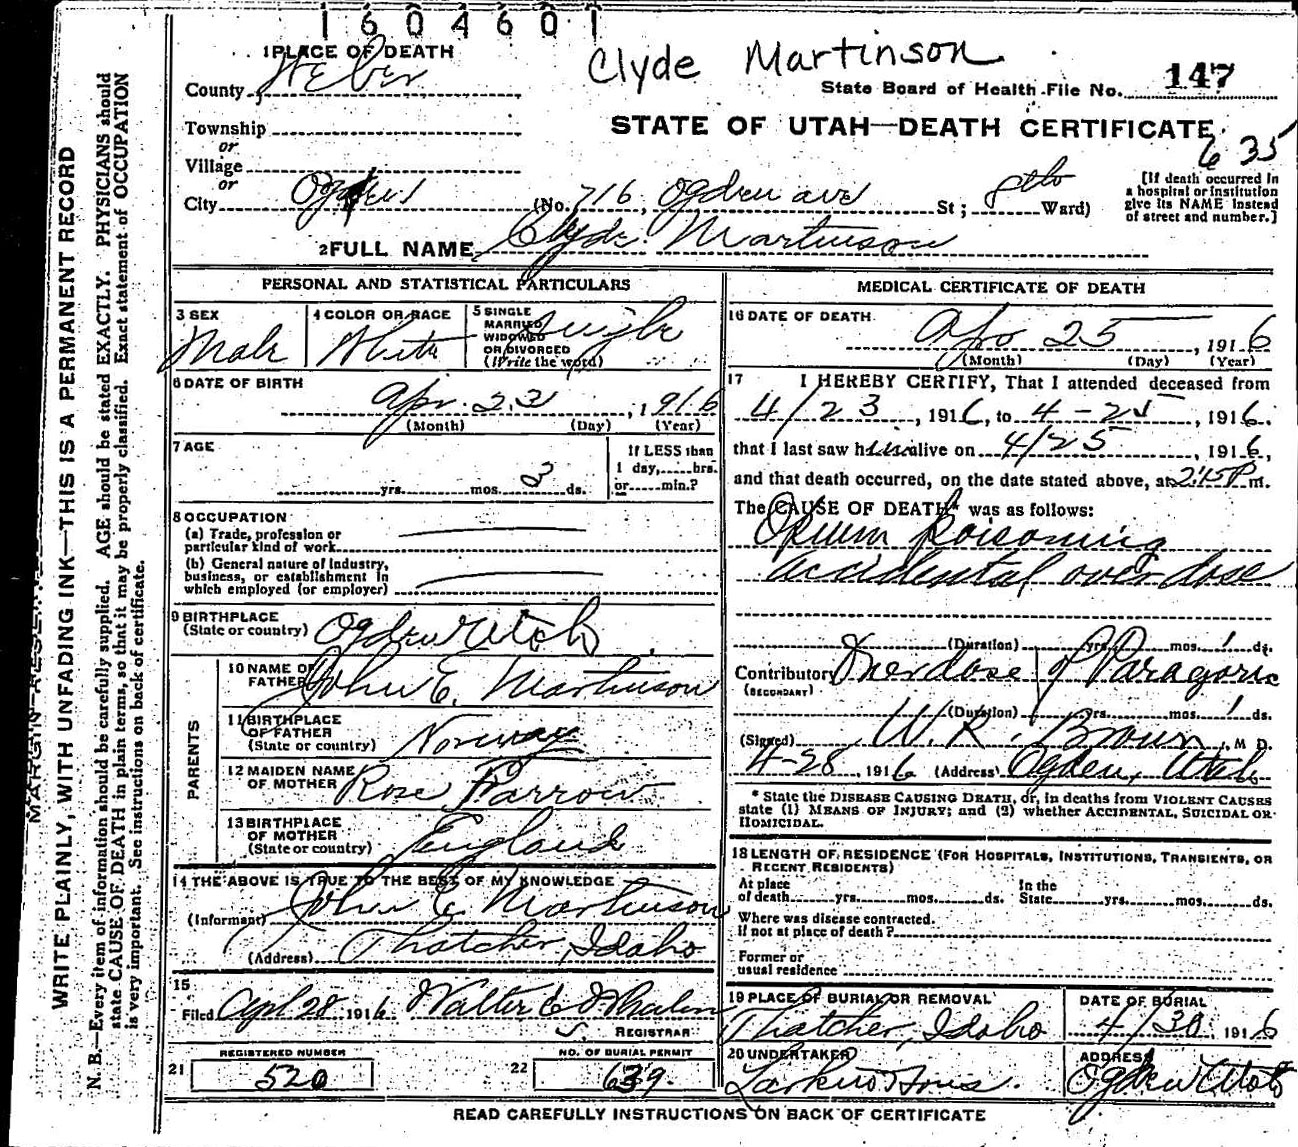 1604601
Clyde Martinson
1 PLACE OF DEATH
County Weber
State Board of Health File No. 147
Township
STATE OF UTAH—DEATH CERTIFICATE
or
635
Village
or
City Ogden (No. 716, Ogden ave St; 8th Ward)
[If death occurred in
a hospital or institution
give its NAME instead
of street and number.]
2 FULL NAME Clyde Martinson
PERSONAL AND STATISTICAL PARTICULARS
3 SEX
Male
4 COLOR OR RACE
White
5 SINGLE
MARRIED
WIDOWED
OR DIVORCED
(Write the word)
Single
6 DATE OF BIRTH
Apr. 23, 1916
(Month) (Day) (Year)
7 AGE
yrs. mos. 3 ds.
If LESS than
1 day, hrs.
or min.?
8 OCCUPATION
(a) Trade, profession or
particular kind of work
(b) General nature of Industry,
business, or establishment in
which employed (or employer)
9 BIRTHPLACE
(State or country) Ogden Utah
PARENTS
10 NAME OF
FATHER John E. Martinson
11 BIRTHPLACE
OF FATHER
(State or country) Norway
12 MAIDEN NAME
OF MOTHER Rose Farrow
13 BIRTHPLACE
OF MOTHER
(State or country) England
14 THE ABOVE IS TRUE TO THE BEST OF MY KNOWLEDGE
(Informant) John E. Martinson
(Address) Thatcher, Idaho
15
Filed Apl 28 1916 Walter E Whalen
REGISTRAR
REGISTERED NUMBER
21 520
NO. OF BURIAL PERMIT
22 639
MEDICAL CERTIFICATE OF DEATH
16 DATE OF DEATH
Apr 25, 1916
(Month) (Day) (Year)
17 I HEREBY CERTIFY, That I attended deceased from
4/23, 1916, to 4-25, 1916.
that I last saw him alive on 4/25, 1916,
and that death occurred, on the date stated above, at 2:45 P m.
The CAUSE OF DEATH* was as follows:
Opium poisoning
accidental over dose
(Duration) yrs. mos. 1 ds.
Contributory Overdose of Paragoric
(SECONDARY)
(Duration) yrs. mos. 1 ds.
(Signed) W. R. Brown, M D.
4-28, 1916 (Address) Ogden, Utah
* State the DISEASE CAUSING DEATH, or, in deaths from VIOLENT CAUSES
state (1) MEANS OF INJURY; and (2) whether ACCIDENTAL, SUICIDAL OR
HOMICIDAL.
18 LENGTH OF RESIDENCE (FOR HOSPITALS, INSTITUTIONS, TRANSIENTS, OR
RECENT RESIDENTS)
At place
of death yrs. mos. ds.
In the
State yrs. mos. ds.
Where was disease contracted.
if not at place of death?
Former or
usual residence
19 PLACE OF BURIAL OR REMOVAL
Thatcher, Idaho
DATE OF BURIAL
4/30 1916
20 UNDERTAKER
Larkin & Sons.
ADDRESS
Ogden Utah
READ CAREFULLY INSTRUCTIONS ON BACK OF CERTIFICATE
WRITE PLAINLY, WITH UNFADING INK—THIS IS A PERMANENT RECORD
N. B.—Every item of information should be carefully supplied. AGE should be stated EXACTLY. PHYSICIANS should
state CAUSE OF DEATH in plain terms, so that it may be properly classified. Exact statement of OCCUPATION
is very important. See instructions on back of certificate.